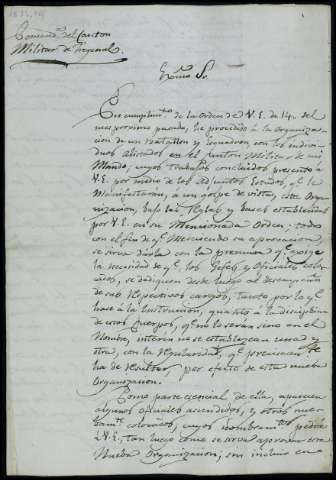 Comand.ª del Canton
Militar de Fregenal.
Exmo Sr.
En cumplim.to de la Orden de V.E. de 14 del
mes proximo pasado, he procedido à la Organiza-
cion de un Batallon y Esquadron con los indivi-
duos alistados en el Canton Militar de mi
Mando; cuyos trabajos concluidos presento à
V.E. por medio de los adjuntos Estados, q.e le
Manifestaran, à un golpe de vista, esta Orga-
nizacion, bajo las Reglas y bases establecidas
por V.E. en su Mencionada Orden; todo
con el fin de q.e Mereciendo su aprovacion,
se sirva darla con la premura q.e exige
la necesidad de q.e los Gefes y Oficiales colo-
cados, se dediquen desde luego al desempeño
de sus Respectivos cargos, tanto por lo q.e
hace à la Instruccion, quanto à la disciplina
de estos Cuerpos, q.e no lo seran sino en el
Nombre, interin no se establezcan una y
otra, con la Regularidad, q.e precisamente
ha de Resultar por efecto de esta nueva
Organizacion.
Como parte esencial de ella, aparecen
algunos oficiales ascendidos, y otros nue-
bam.te colocados, cuyos nombram.tos pedire
à V.E., tan luego como se sirva aprovar esta
Nueva Organizacion; sin incluir en